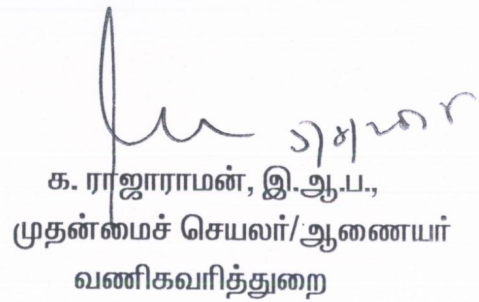 க. ராஜாராமன், இ.ஆ.ப.,
முதன்மைச் செயலர்/ஆணையர்
வணிகவரித்துறை